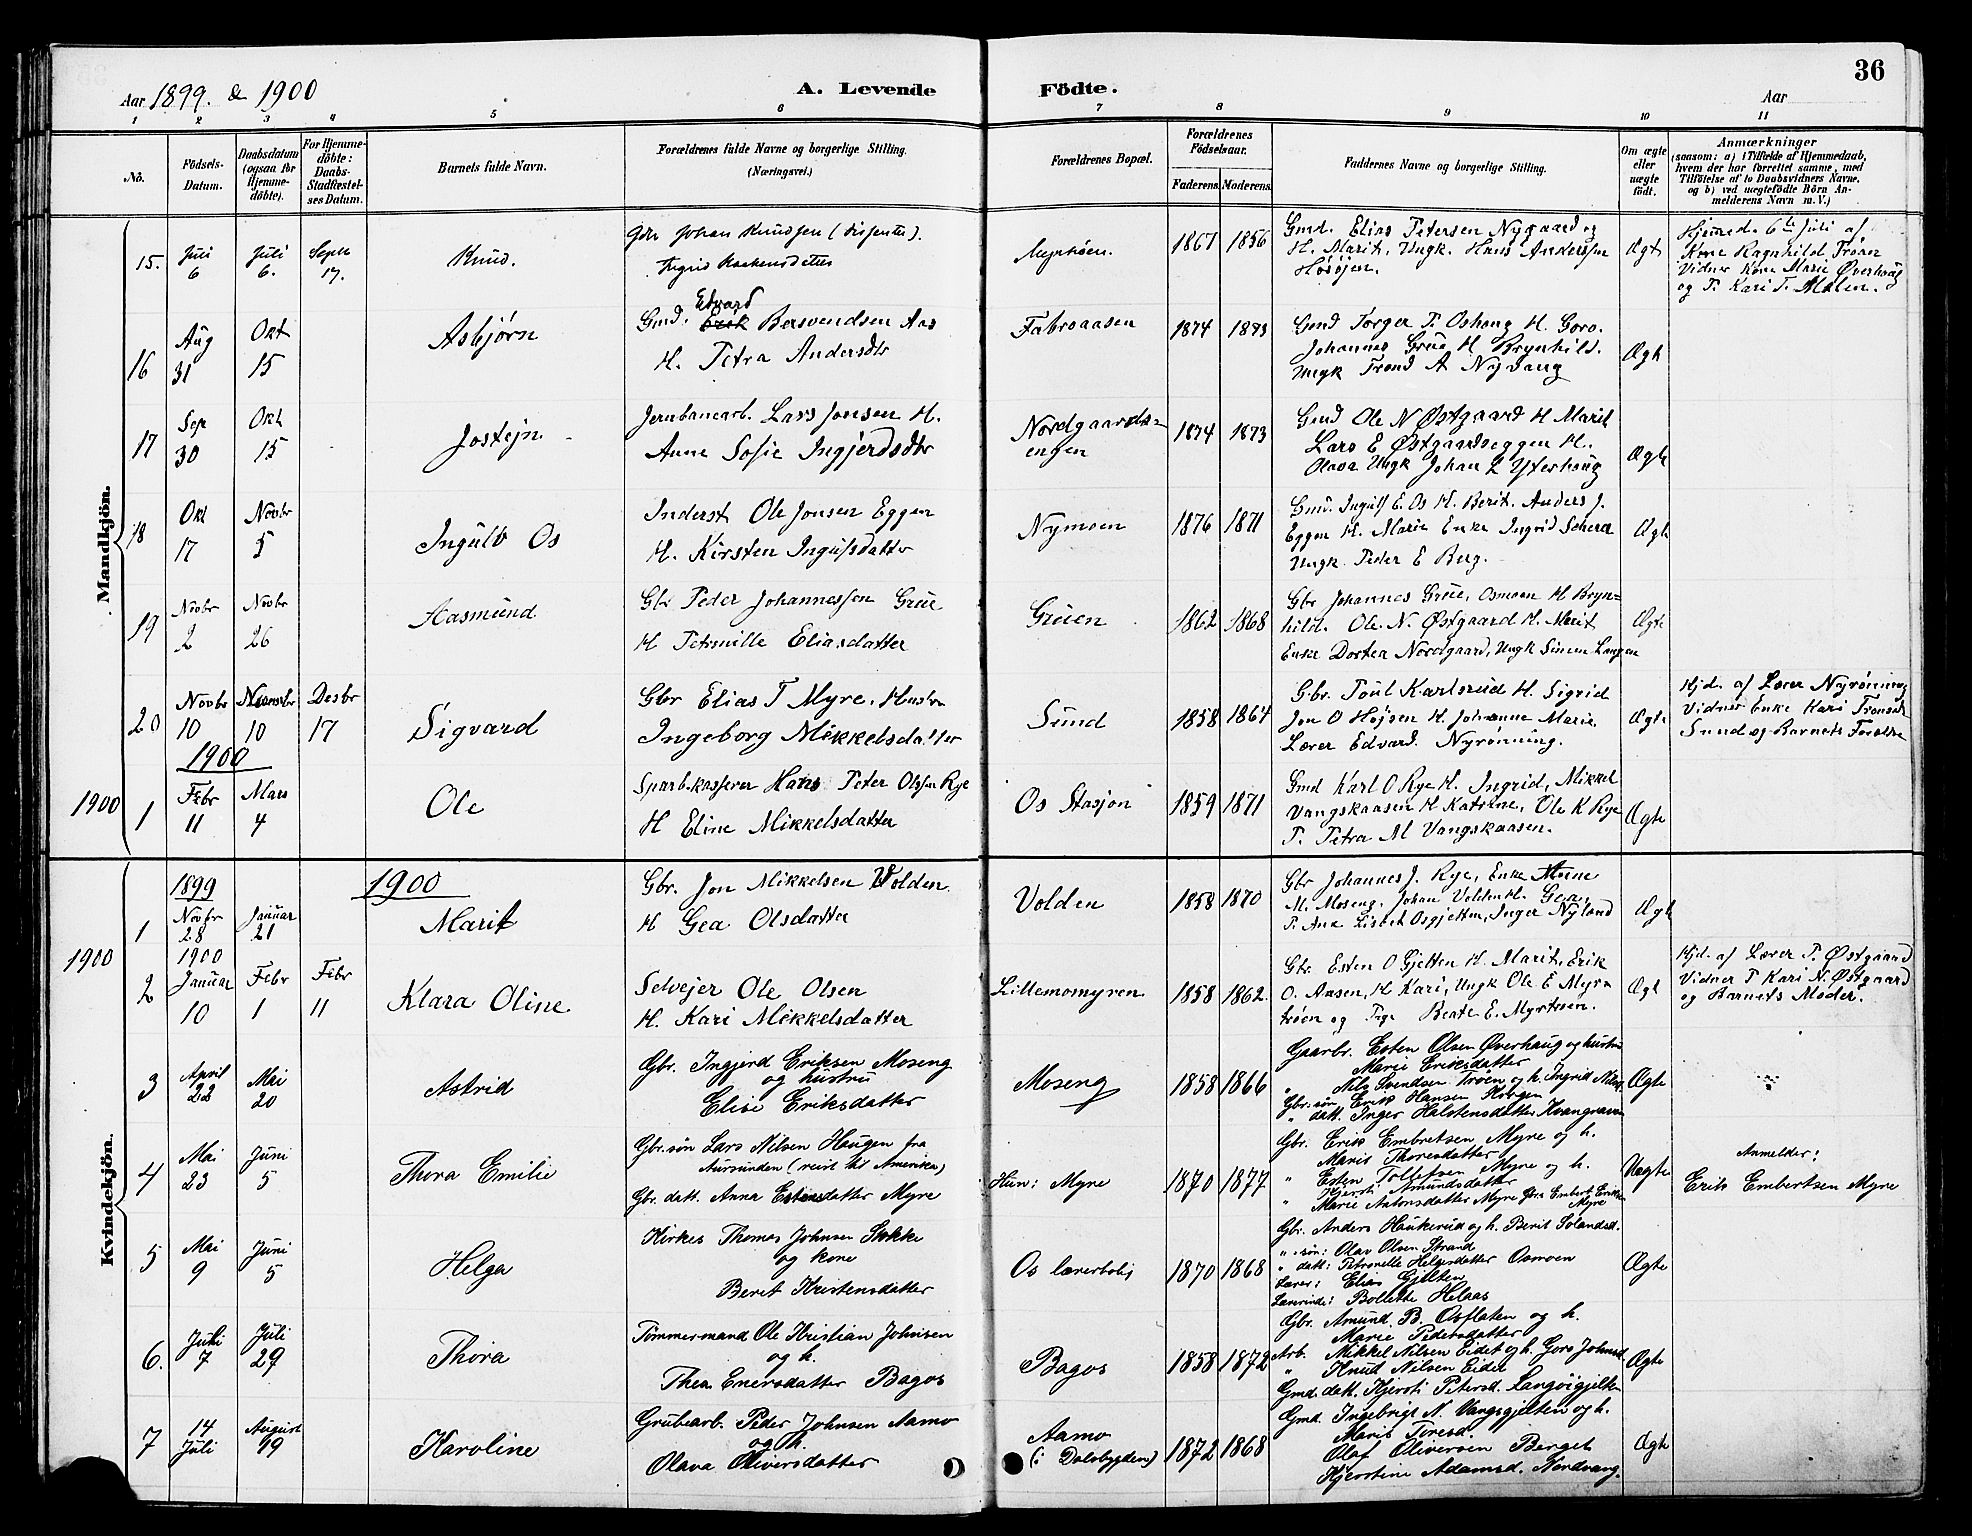 36
Aar 1899. & 1900
A. Levende Födte.
Aar
1 2 3 4 5 6 7 8 9 10 11
No.
Födsels-Datum.
Daabsdatum (ogsaa for Hjemme-döbte).
For Hjemme-döbte: Daabs-Stadfæstel-ses Datum.
Barnets fulde Navn.
Forældrenes fulde Navne og borgerlige Stilling. (Næringsvei.)
Forældrenes Bopæl.
Forældrenes Födselsaar.
Faderens. Moderens.
Faddernes Navne og borgerlige Stilling.
Om ægte eller uægte födt.
Anmærkninger
(saasom: a) i Tilfælde af Hjemmedaab, hvem der har forrettet samme, med Tilföielse af to Daabsvidners Navne. og b) ved uegtefödte Börn An-melderens Navn m. V.)
Mandkjön.
15. Juli 6 Juli 6. Septr 17.
Knud.
Johan Knudsen
1867 1856
Gmd. Elias Petersen Nygaard og
H. Marit, Ungk. Hans Anderssen
Høsøjen.
Ægt
Hjemmed. 6te Juli af
Kone Ragnhild Trøen
Vidner Kone Marie Øverhaug
og P. Kari T. Malen.
16 Aug 31 Okt 15
Asbjørn
Edvard
Gmd. Erik Bersvendsen Aas
H. Petra Andersdtr
Fabroaasen
1874 1873
Gmd Torger P. Oshaug H. Goro.
Johannes Grue H Brynhild.
Ungk Trond A Nyvang
Ægte
17 Sep 30 Okt 15
Jostejn
Jernbanearb. Lars Jonsen H.
Anne Sofie Ingjerdsdtr
Nordgaards=
engen
1874 1873
Gmd Ole N Østgaard H Marit
Lars E Østgaardseggen H.
Olava Ungk Johan L Ytterhaug
Ægte
18 Okt 17 Novbr 5
Ingulv Os
Inderst Ole Jonsen Eggen
H. Kirsten Ingulfsdatter
Nymoen
1876 1871
Gmd. Ingulf E. Os H. Berit. Anders J.
Eggen H. Marie Enke Ingrid
Ungk. Peder E Berg.
Ægte
19 Novbr 2 Novbr 26
Aasmund
Gbr Peder Johannessen Grue
H Petronille Eliasdatter
Gruen
1862 1868
Gbr Johannes Grue, Osmoen H Bryn=
hild. Ole N. Østgaard H. Marit
Enke Dortea Nordgaard, Ungk Simen Langen
Ægte
20 Novbr 10 Novembr 10 Desbr 17
Sigvard
Gbr Elias T Myre. Hustru
Ingeborg Mikkelsdatter
Sund
1858 1864
Gbr. Poul Karlsrud H. Sigrid
Jon O Højsen H. Johanne Marie.
Lærer Edvard. Nyrønning.
Ægte
Hjd. af Lærer Nyrønning
Vidner Enke Kari Tronsd.
Sund og Barnets Forældre
1900
1900 1 Febr 11 Mars 4
Ole
Sparbkasserer Hans Peter Olsen Rye
H Eline Mikkelsdatter
Os Stasjon
1859 1871
Gmd Karl O Rye H. Ingrid, Mikkel
Vangskaasen H Katrine, Ole K Rye
P. Petra M Vangskaasen.
Ægte
Kvindekjön.
1899 1900
1 Novbr 28 Januar 21
Marit
Gbr. Jon Mikkelsen Volden.
H Gea Olsdatter
Volden
1858 1870
Gbr Johannes J. Rye, Enke Anne
M. Moseng. Johan Volden H. Gea,
P. Ana Lisbet Osgjetten, Inger Nyland
Ægte
1900 2 1900 Januar 10 Febr 1 Febr 11
Klara Oline
Selvejer Ole Olsen
H. Kari Mikkelsdatter
Lillemomyren
1858 1862.
Gbr. Esten O Gjetten H. Marit, Erik
O. Aasen, H Kari, Ungk Ole E Myr=
trøen og Pige Beate E. Myrtrøen.
Ægt
Hjd. af Lærer P. Østgaard
Vidner P Kari N. Østgaard
og Barnets Moder.
3 April 22 Mai 20
Astrid
Gbr. Ingjerd Eriksen Moseng
og hustru
Elise Eriksdatter
Moseng
1858 1866
Gaarbr. Esten Olsen Øverhaug og hustru
Marie Eriksdatter
" Nils Svendsen Trøen og h. Ingrid Nilsd.
Gbr. søn Erik Hansen
" datt. Inger Halstensdatter Kvangraven
Ægte
4 Mai 23 Juni 5
Thora Emilie
Gbr. søn Lars Nilsen Haugen fra
Aursunden (reist til Amerika)
Gbr. datt. Anna Estensdatter Myre
Hun: Myre
1870 1877
Gbr. Erik Embretsen Myre og h.
Marit Thoresdatter
" Esten Tollefsen Myre og h.
Kjersti Amundsdatter
" Marie Antonsdatter Myre Gbrs. Embert Eriksen Myre
Uægte
Anmelder:
Erik Embertsen Myre
5 Mai 9 Juni 5
Helga
Kirkes Thomas Johnsen Stokke
og kone
Berit Kristensdatter
Os lærerbolig
1870 1868
Gbr. Anders Haukerud og h. Berit
" søn: Olav Olsen Strand
" datt: Petronelle Helgesdatter Osmoen
Lærer: Elias Gjelten
Lærerinde: Bollette Helaas
Ægte
6. Juli 7 Juli 29
Thora
Tömmermand Ole Kristian Johnsen
og h.
Thea Enersdatter Bagos
Bagos
1858 1872
Gbr. Amund. B. Osflaten og h.
Marie Pedersdatter
Arb. Mikkel Nilsen Eidet og h. Goro Johnsd.
" Knud Nilsen Eidet
Gmd. datt. Kjersti Petersd. Langøigjelten
Ægte
7 14 Juli August 19
Karoline
Grubearb. Peder Johnsen Aamo
og h.
Olava Oliversdatter
Aamo
(i Dalsbygden)
1872 1868
Gmd. Ingebrigt N. Vangsgjelten og h.
Marit Toresd.
Olaf Oliversen Berget
Kjerstine Adamsd. Nordvang.
Ægte